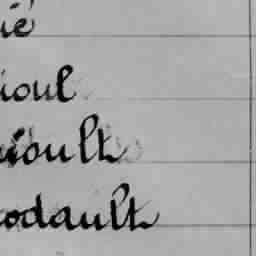 ié
ioul
rioult
rodault